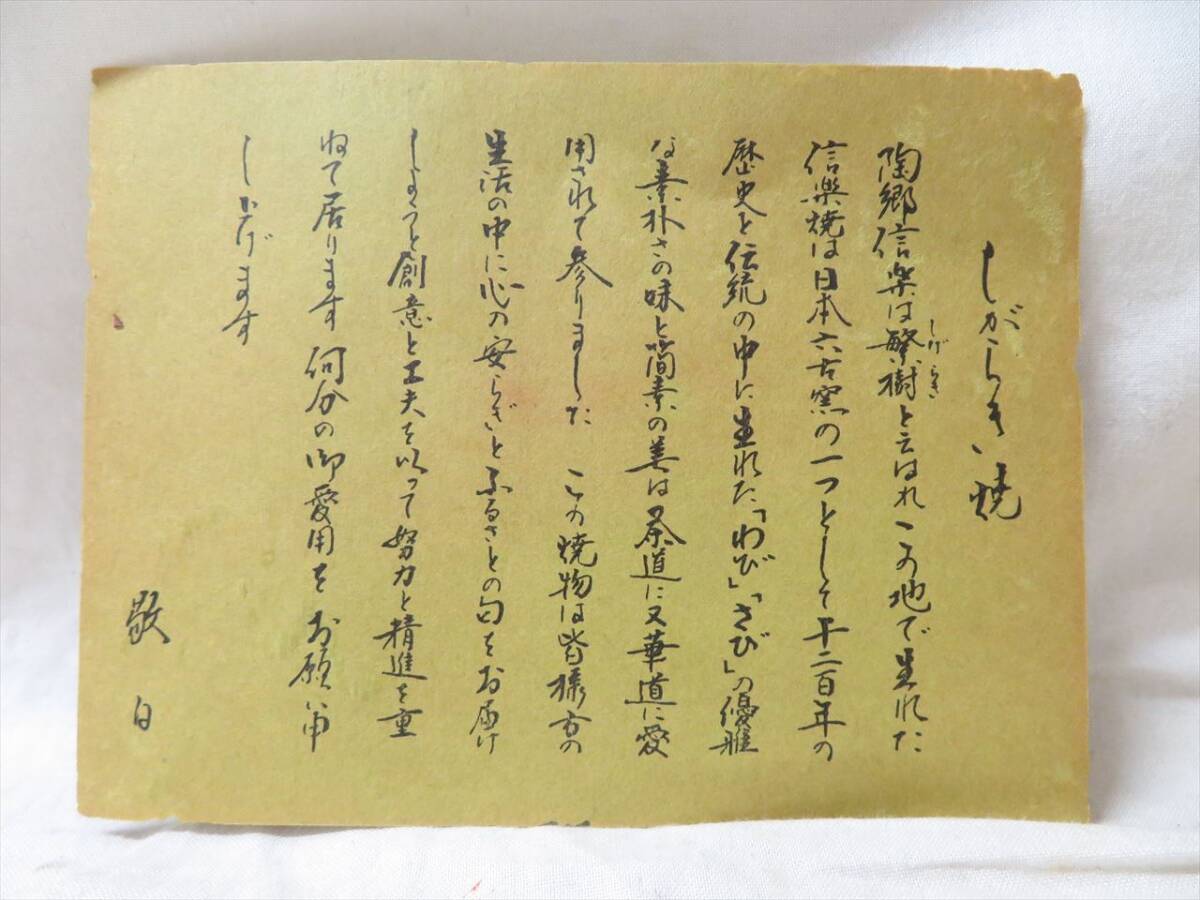 しがらき焼
陶郷信楽は繁樹と云はれこの地で生れた
しげらき
信楽焼は日本六古窯の一つとして千二百年の
歴史と伝統の中に生れた「わび」「さび」の優雅
な素朴さの味と簡素の美は茶道に又華道に愛
用されて参りました この焼物は皆様方の
生活の中に心の安らぎとふるさとの匂をお届け
しようと創意と工夫を以って努力と精進を重
ねて居ります 何分の御愛用をお願い申
しあげます
敬白